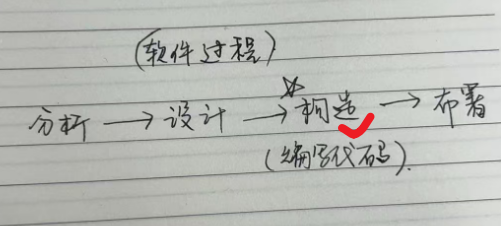 (软件过程)
分析 → 设计 → 构造 → 布署
(编写代码).